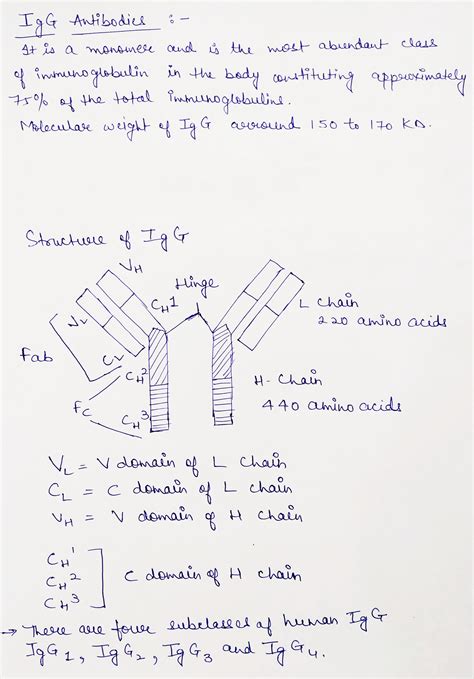 IgG Antibodies :-
It is a monomer and is the most abundant class
of immunoglobulin in the body constituting approximately
75% of the total immunoglobulins.
Molecular weight of IgG arround 150 to 170 KD.
Structure of IgG
VH
Hinge
CH1
L chain
220 amino acids
VL
Fab
CL
CH2
H-Chain
Fc
440 amino acids
CH3
VL = V domain of L chain
CL = C domain of L chain
VH = V domain of H chain
CH1
CH2
C domain of H chain
CH3
→ There are four subclasses of human IgG
IgG1, IgG2, IgG3 and IgG4.